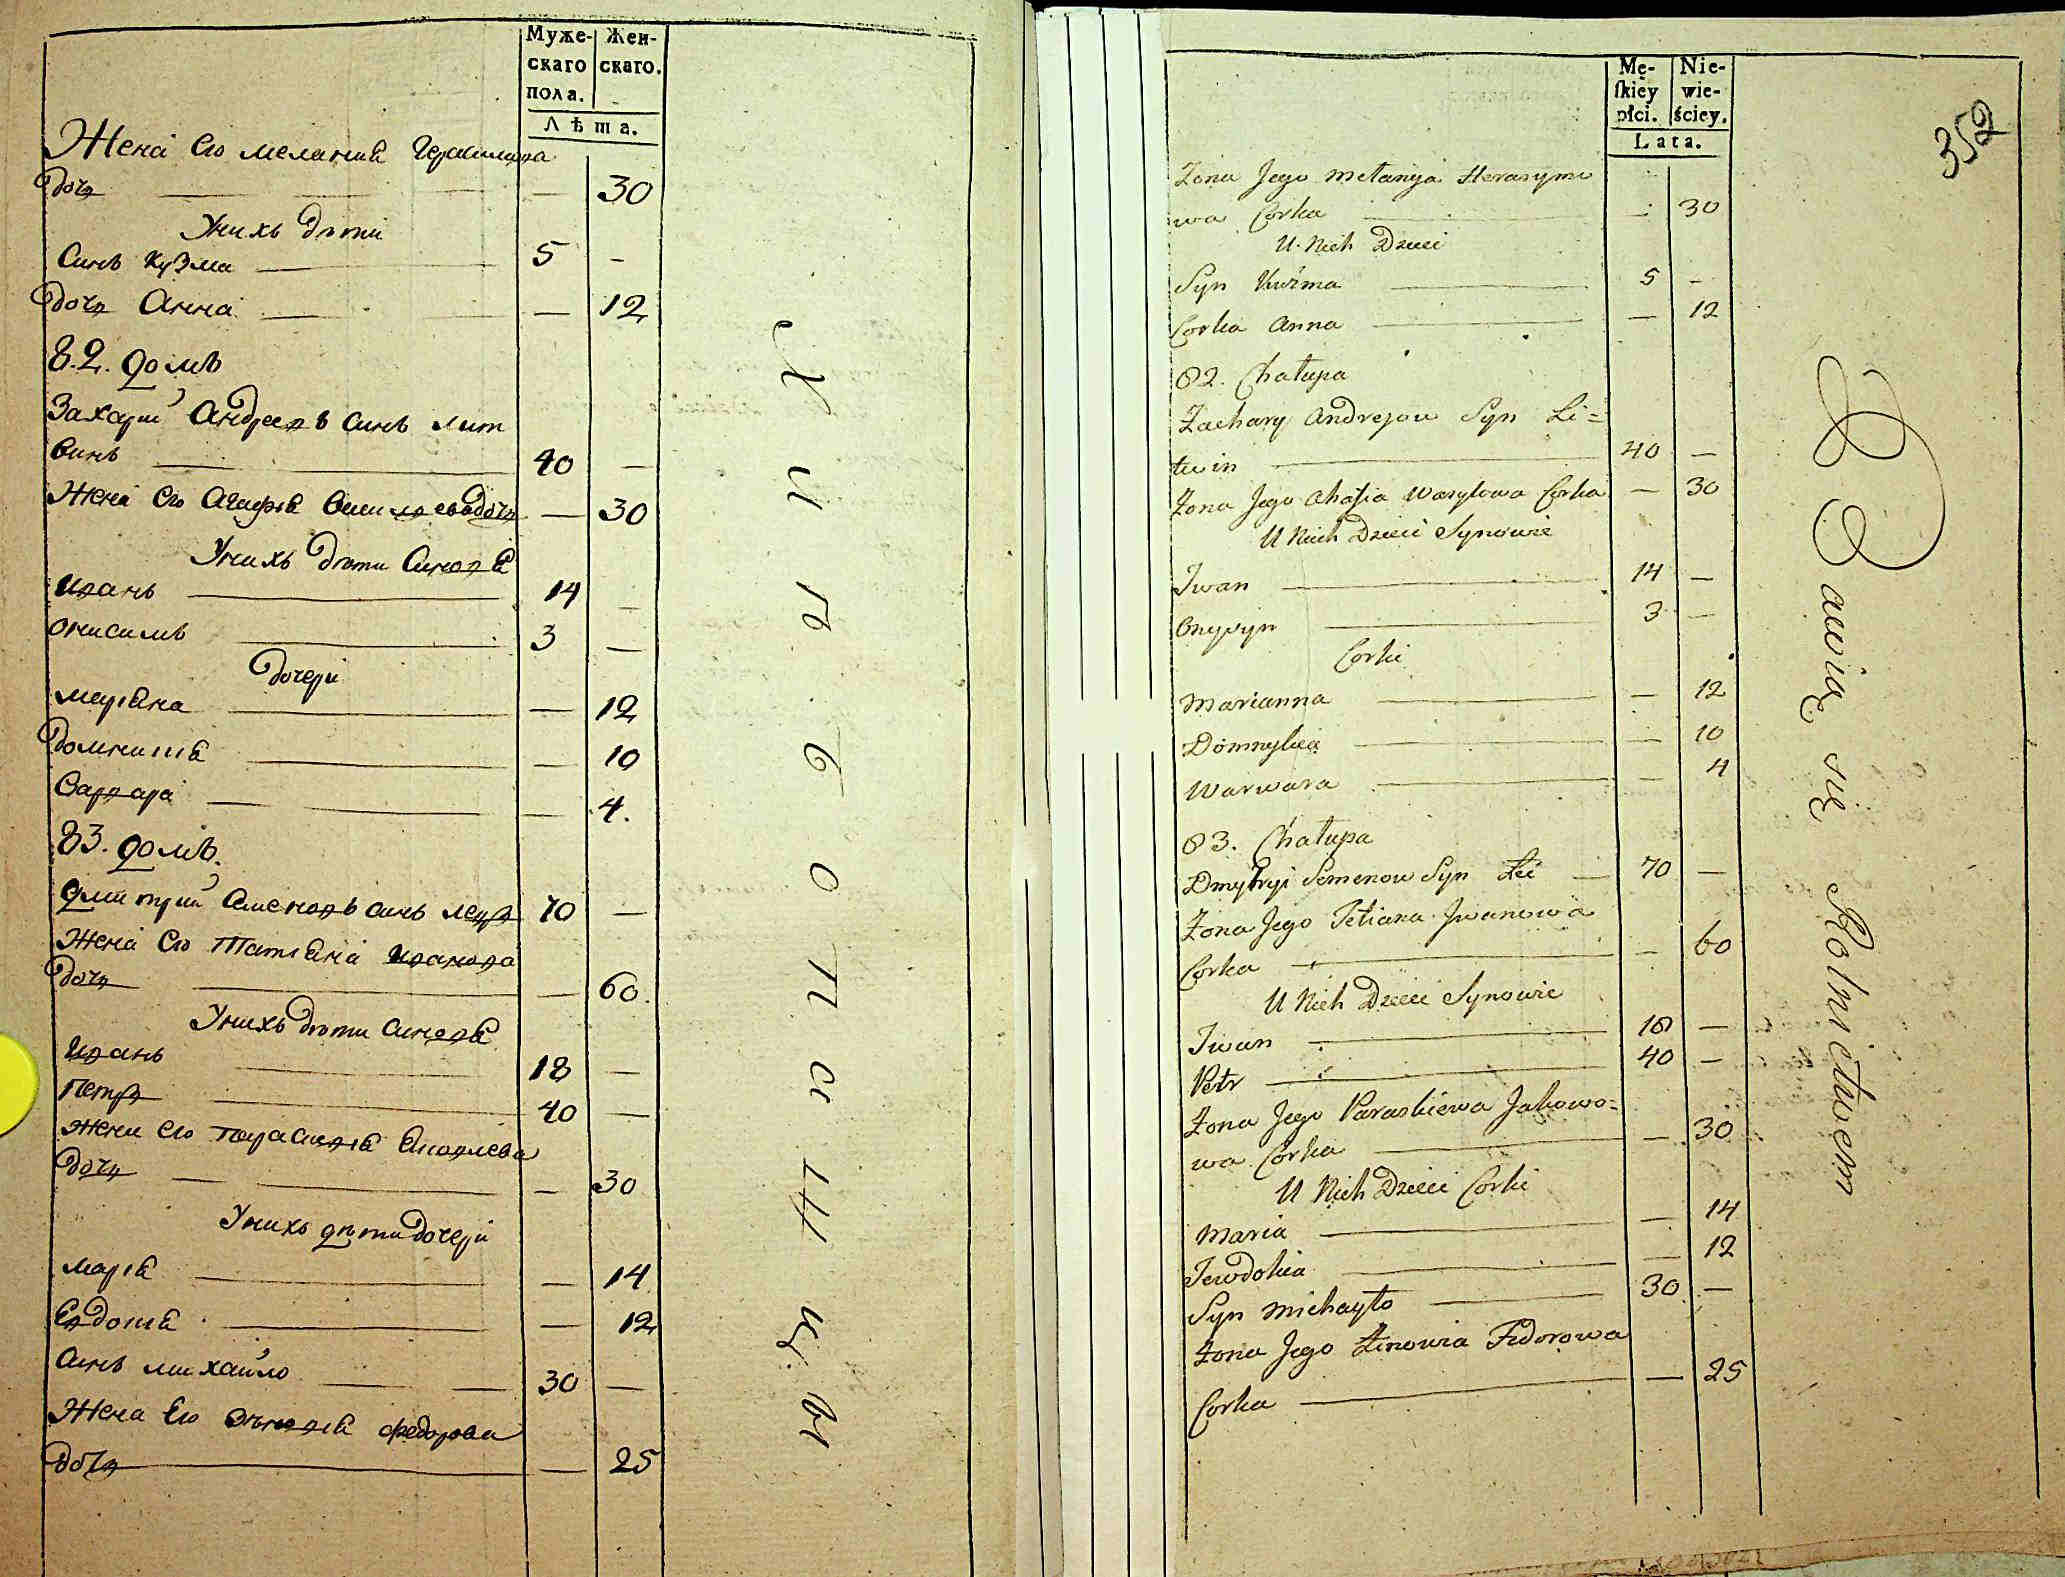 Муже-
скаго
пола.
Жен-
скаго.
Лѣта.
Жена его мелания Герасимова
дочъ — — 30
У нихъ дѣти
Синъ Кузма — 5 —
дочъ Анна — — 12
82. домъ
Захарий Андреевъ синъ лит
винъ — 40 —
Жена его Агафия василева дочъ — 30
У нихъ дѣти Синовя
иванъ — 14 —
онисимъ — 3 —
дочери
мариана — — 12
домникия — — 10
Варвара — — 4.
83. домъ.
дмитрий Семеновъ синъ 70 —
Жена его Татиана иванова
дочъ — — 60.
У нихъ дѣти синовя
иванъ — 18 —
петръ — 40 —
жена его параскивия яковлева
дочъ — — 30
У нихъ дѣти дочери
мария — — 14
Евдокия — — 12
синъ михайло — 30 —
Жена Его зѣновия федорова
дочъ — — 25
Хлѣбопашцы
Mę-
ſkiey
płci.
Nie-
wie-
ściey.
Lata.
352
Zona Jego Mełanyja Herasymo
wa Corka — — 30
U Nich Dzieci
Syn Kuźma — 5 —
Corka Anna — — 12
82. Chałupa
Zachary Andrejow Syn Li=
twin — 40 —
Zona Jego Ahafia Wasylowa Corka — 30
U Nich Dzieci Synowie
Iwan — 14 —
Onysym — 3 —
Corki
Marianna — — 12
Domnykia — — 10
Warwara — — 4
83. Chałupa
Dmytryi Semenow Syn — 70 —
Zona Jego Tetiana Iwanowa
Corka — — 60
U Nich Dzieci Synowie
Iwan — 18 —
Petr — 40 —
Zona Jego Paraskiewa Jakowo=
wa Corka — — 30
U Nich Dzieci Corki
Maria — — 14
Jewdokia — — 12
Syn Michayło — 30 —
Zona Jego Zinowia Fedorowa
Corka — — 25
Bawią się Rolnictwem